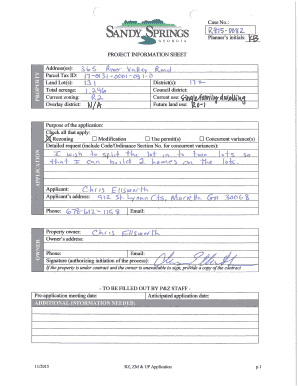 Case No.:
R215-0082
Planner's initials: KB
SANDY SPRINGS
GEORGIA
PROJECT INFORMATION SHEET
PROPERTY
Address(es): 365 River Valley Road
Parcel Tax ID: 17-0131-0001-031-0
Land Lot(s): 131 District(s): 17th
Total acreage: 1.296 Council district:
Current zoning: R2 Current use: Single family dwelling
Overlay district: N/A Future land use: R0-1
APPLICATION
Purpose of the application:
Check all that apply:
Rezoning Modification Use permit(s) Concurrent variance(s)
Detailed request (include Code/Ordinance Section No. for concurrent variances):
I wish to split the lot in to two lots so
that I can build 2 homes on the lots.
Applicant: Chris Ellsworth
Applicant's address: 912 St. Lyonn Cts, Marietta Ga 30068
Phone: 678-612-1158 Email:
OWNER
Property owner: Chris Ellsworth
Owner's address:
Phone: Email:
Signature (authorizing initiation of the process):
If the property is under contract and the owner is unavailable to sign, provide a copy of the contract
- TO BE FILLED OUT BY P&Z STAFF -
Pre-application meeting date: Anticipated application date:
ADDITIONAL INFORMATION NEEDED:
11/2015 RZ, ZM & UP Application p.1